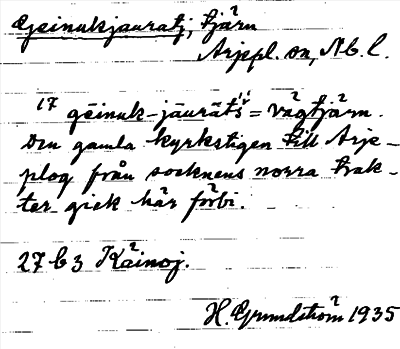 Gseinukjauratj, tjärn
Arjepl. sn, Nb. l.
17 gēinuk-jāurāts = vägtjärn.
Den gamla kyrkstigen till Arje-
plog från socknens norra trak-
ter gick här förbi.
27 b 3 Käinoj.
H. Grundström 1935